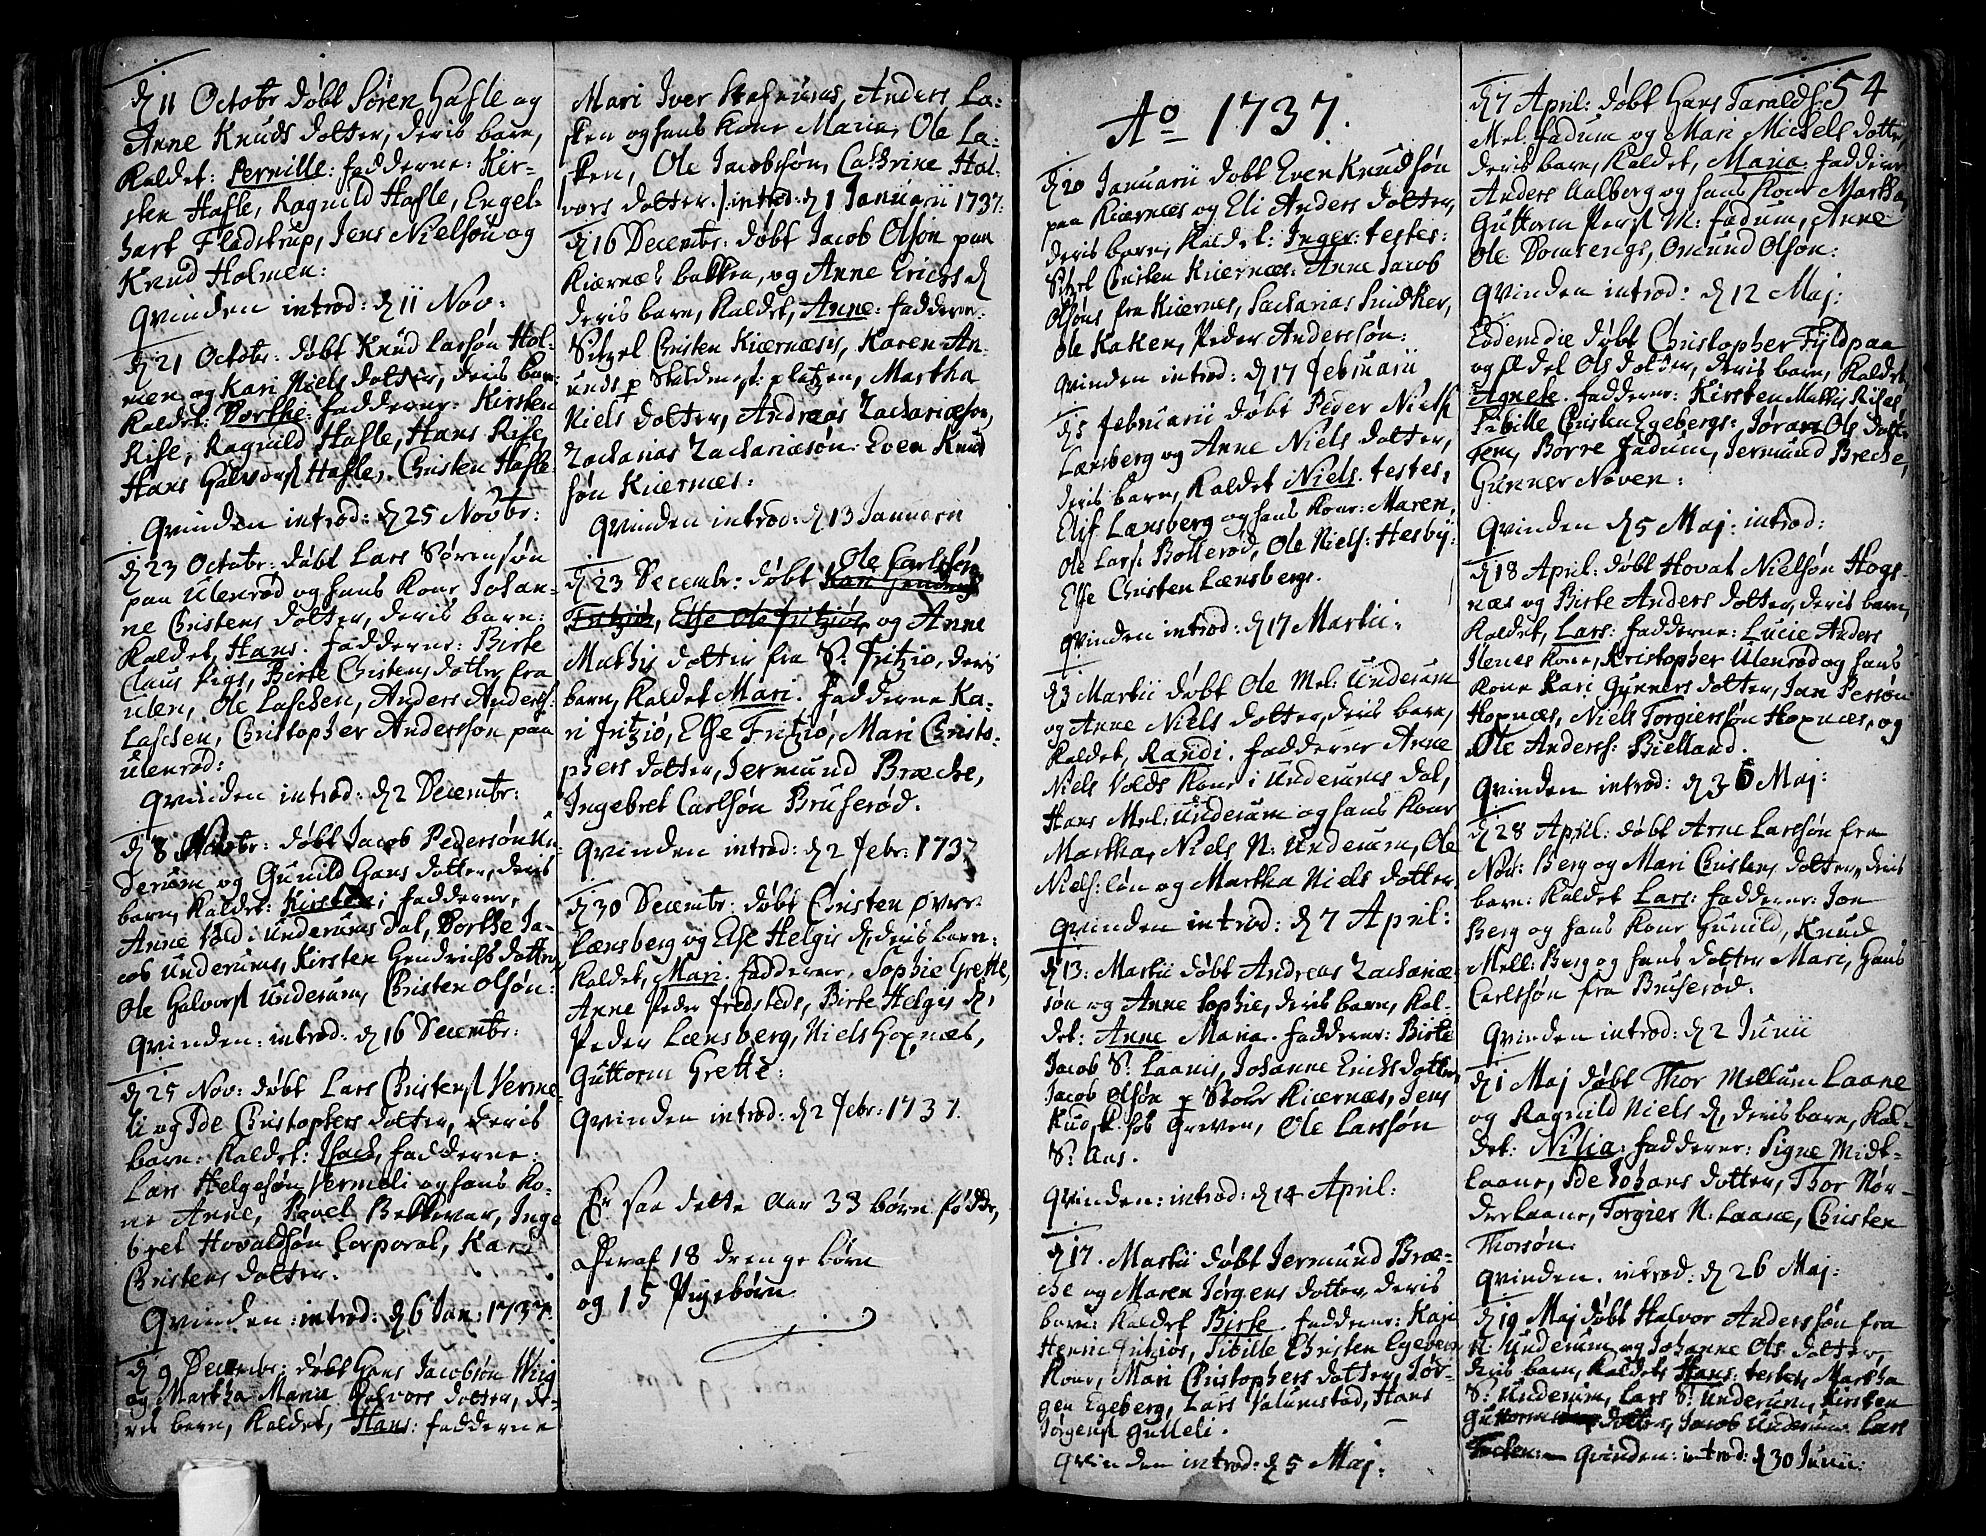 d 11 Octobr døbt Søren Hasle og
Anne Knuds dotter, deris barn,
Kaldet: Pernille: fadderne: Kir-
sten Hasle, Ragnild Hasle, Engel-
hart Fladstrup, Jens Nielsøn og
Knud Holmen:
Qvinden introd: d 11 Nov:
d 21 Octobr: døbt Knud Larsøn Hol-
men og Kari Niels dotter, deris barn
Kaldet: Dorthe: fadderne: Kirsten
Rise, Ragnild Hasle, Hans Rise,
Hans Halvorss Hasle, Christen Hasle
Qvinden introd: d 25 Novbr:
d 23 Octobr: døbt Lars Sørensøn
paa Ulenrød og hans Kone Johan-
ne Christens dotter, deris barn:
Kaldet, Hans. fadderne: Birte
Claus Pigs, Birte Christens dotter fra
Ulen, Ole Laschen, Anders Anderss:
Laschen, Christopher Anderssøn paa
Ulenrød:
Qvinden introd: d 2 Decembr:
d 8 Novbr: døbt Jacob Pedersøn Un-
derum og Gunild Hans dotter, deris
barn, Kaldet: Kirsten: fadderne,
Anne Vold i Underums dal, Dorthe Ja-
cob Underums, Kirsten Hendrichs dotter,
Ole Halvorss Underum, Christen Olsøn:
Qvinden: introd: d 16 Decembr:
d 25 Nov: døbt Lars Christenss Verme-
li og Ide Christophers dotter, deris
barn: Kaldet: Isach, fadderne:
Lars Helgesøn Vermeli og hans Ko-
ne Anne, Povel Bekkevar, Inge
bret Hovaldsøn Corporal, Kari
Christens dotter.
Qvinden: introd: d 6 Jan: 1737.
d 9 Decembr: døbt Hans Jacobsøn Wiig
og Martha Maria Halvors dotter, de-
ris barn, Kaldet, Hans: fadderne
Mari Iver Stafrums, Anders La-
sken og hans Kone Maria, Ole La-
sken, Ole Jacobsøn, Cathrine Hal-
vors dotter. / introd: d 1 Januarii 1737.
d 16 Decembr: døbt Jacob Olsøn paa
Kiærnæs bakken, og Anne Erichs d
deris barn, Kaldet, Anne: fadderne:
Sitzel Christen Kiærnæsis, Karen An-
unds p platzen, Martha
Niels dotter, Andreas Zachariæsøn,
Zacharias Zachariæsøn. Even Knud
søn Kiærnæs:
Qvinden introd: d 13 Januarii
Ole Carlsøn
d 23 Decembr: døbt
Fritziø, Else Ole Fritziø, og Anne
Mathis dotter fra S: Fritziø, deris
barn, Kaldet Mari. Fadderne Ka-
ri Fritziø, Else Fritziø, Mari Christo-
phers dotter, Jermund Bræche,
Ingebret Carlsøn Bruserød.
Qvinden introd: d 2 Febr: 1737
d 30 Decembr: døbt Christen Øvre
Lænsberg og Else Helgis d, deris barn:
Kaldet, Mari. fadderne, Sophie Grette,
Anne Peder Fredsteds, Birte Helgis d,
Peder Lænsberg, Niels Hopnæs,
Guttorm Grette:
Qvinden introd: d 2 Febr: 1737.
Er saa dette Aar 33 børn fødde,
deraf 18 drenge børn
og 15 Pigebørn
Ao 1737.
d 20 Januarii døbt Even Knudsøn
paa Kiærnæs og Eli Anders dotter,
deris barn, Kaldet: Inger: testes:
Sitzel Christen Kiærnæs: Anne Jacob
Olsøns fra Kiærnes, Zacharias Snidker,
Ole Kaken, Peder Anderssøn:
Qvinden introd: d 17 Februarii
d 5 Februarii døbt Peder Nielss
Lænsberg og Anne Niels dotter,
deris barn, Kaldet Niels. testes,
Elif Lænsberg og hans Kone: Maren,
Ole Larss: Bollerød, Ole Niels: Hesby:
Else Christen Lænsbergs.
Qvinden introd: d 17 Martii:
d 3 Martii døbt Ole Mel: Underum
og Anne Niels dotter, deris barn,
Kaldet, Randi. fadderne Anne
Niels Volds Kone i Underums dal,
Hans Mel: Underum og hans Kone
Martha, Niels N: Underum, Ole
Niels: søn og Martha Niels dotter.
Qvinden introd: d 7 April:
d 13: Martii døbt Andreas Zachariæ-
søn og Anne Sophie, deris barn, Kal-
det: Anne Maria. fadderne: Birte
Jacob S: Laanis, Johanne Erichs dotter
Jacob Olsøn p Store Kiærnæs, Jens
Kudsk hos Greven, Ole Larssøn
S: Aas.
Qvinden: introd: d 14 April:
d 17. Martii døbt Jermund Bræ-
che og Maren Jørgens dotter, deris
barn: Kaldet Birte. fadderne: Kari
Henric Fritziøs, Sibille Christen Egebergs
Kone, Mari Christophers dotter, Jør-
gen Egeberg, Lars Valumstad, Hans
Jørgenss Gulleli.
Qvinden introd: d 5 Maj:
54
d 7 April: døbt Hans Taraldss:
Mel. Fadum og Mari Michels dotter,
deris barn, Kaldet, Maria. fadderne
Anders Aalberg og hans Kone Martha,
Guttorm Perss M: Fadum, Anne
Ole Domtengs, Omund Olsøn:
Qvinden introd: d 12 Maj:
Eodem die døbt Christopher Fyldpaa
og Edel Ols dotter, deris barn, Kaldet,
Agnete. fadderne: Kirsten Mathis Rises
Sibille Christen Egebergs:, Jøran Ols dott:
Fem, Børre Fadum, Jermund Breche,
Gunner Nøven:
Qvinden d 5 Maj: introd:
d 18 April: døbt Hoval Nielsøn Hogs-
næs og Birte Anders dotter, deris barn,
Kaldet, Lars: fadderne: Lucie Anders
Ilenes Kone, Kristopher Ulenrød og hans
Kone Kari Gunners dotter, Jan Persøn
Hopnæs, Niels Torgierssøn Hopnæs, og
Ole Anderss: Bielland.
Qvinden introd: d 26 Maj:
d 28 April: døbt Arne Larssøn fra
Nør: Berg og Mari Christens dotter, deris
barn: Kaldet Lars: fadderne: Jon
Berg og hans Kone Gunild, Knud
Mell: Berg og hans dotter Mari, Hans
Carlssøn fra Bruserød:
Qvinden introd: d 2 Junii
d 1 Maj døbt Thor Mellum Laane
og Ragnild Niels d, deris barn, Kal-
det: Nilia: fadderne: Signe Midt-
laane, Ide Johans dotter, Thor Nør-
derlaane, Torgier N: Laane, Christen
Thorsøn.
Qvinden. introd: d 26 Maj:
d 19 Maj døbt Halvor Anderssøn fra
N: Underum og Johanne Ols dotter
deris barn, Kaldet Hans: testes, Martha
S: Underum, Lars S: Underum, Kirsten
Guttorms dotter, Jacob Underum. Lars
Qvinden: introd: d 30 Junii: